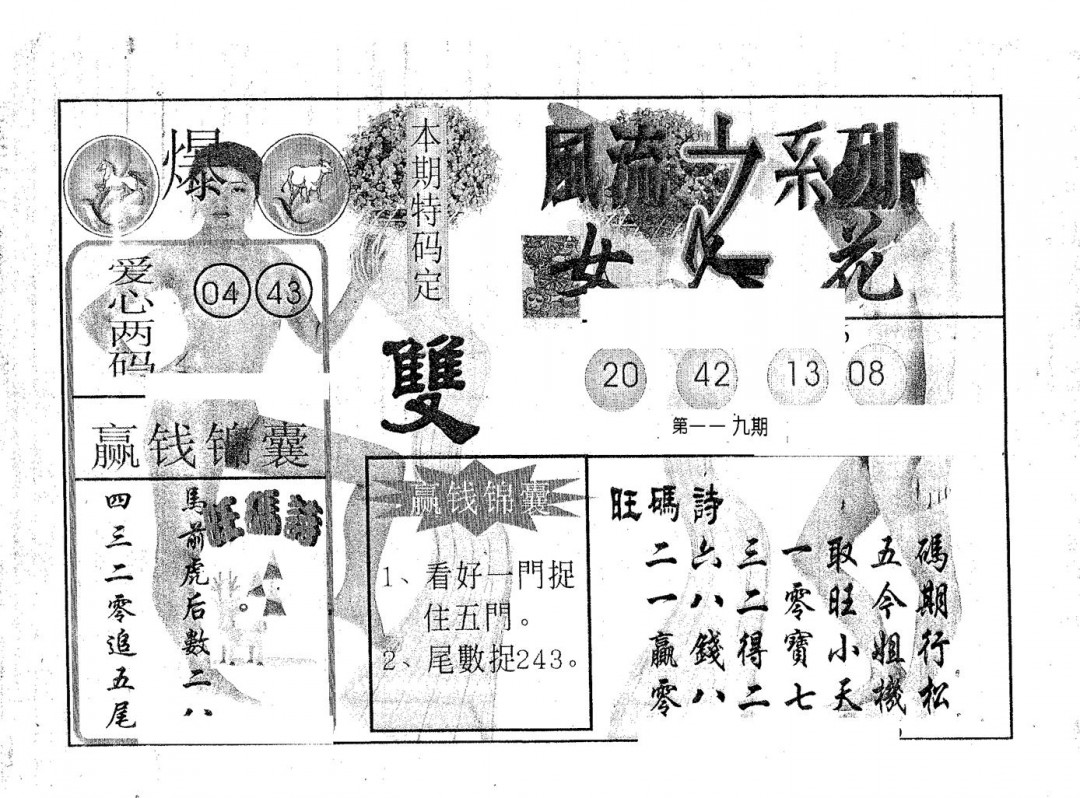 爆
爱心两码
04 43
赢钱锦囊
馬前虎后數二八
四三二零追五尾
旺碼詩
本期特码定
雙
風流之系列
女人花
20 42 13 08
第一一九期
赢钱锦囊
1、看好一門捉
住五門。
2、尾數捉243。
旺碼詩
碼期行松
五今姐機
取旺小天
一零寶七
三二得二
六八錢八
二一贏零